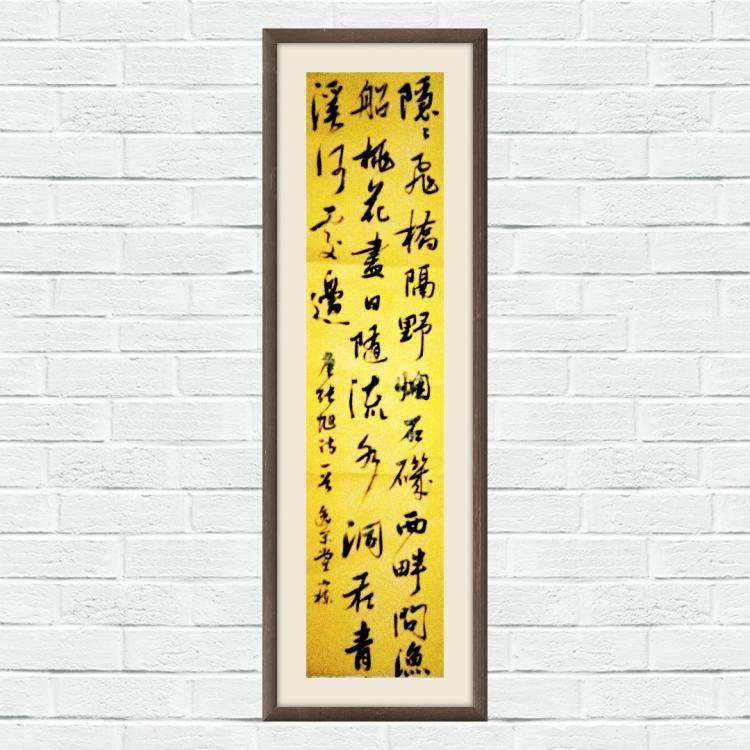 隱〻飛橋隔野烟石磯西畔問漁
船桃花盡日隨流水洞在青
溪何處邊 唐張旭詩一首 堂